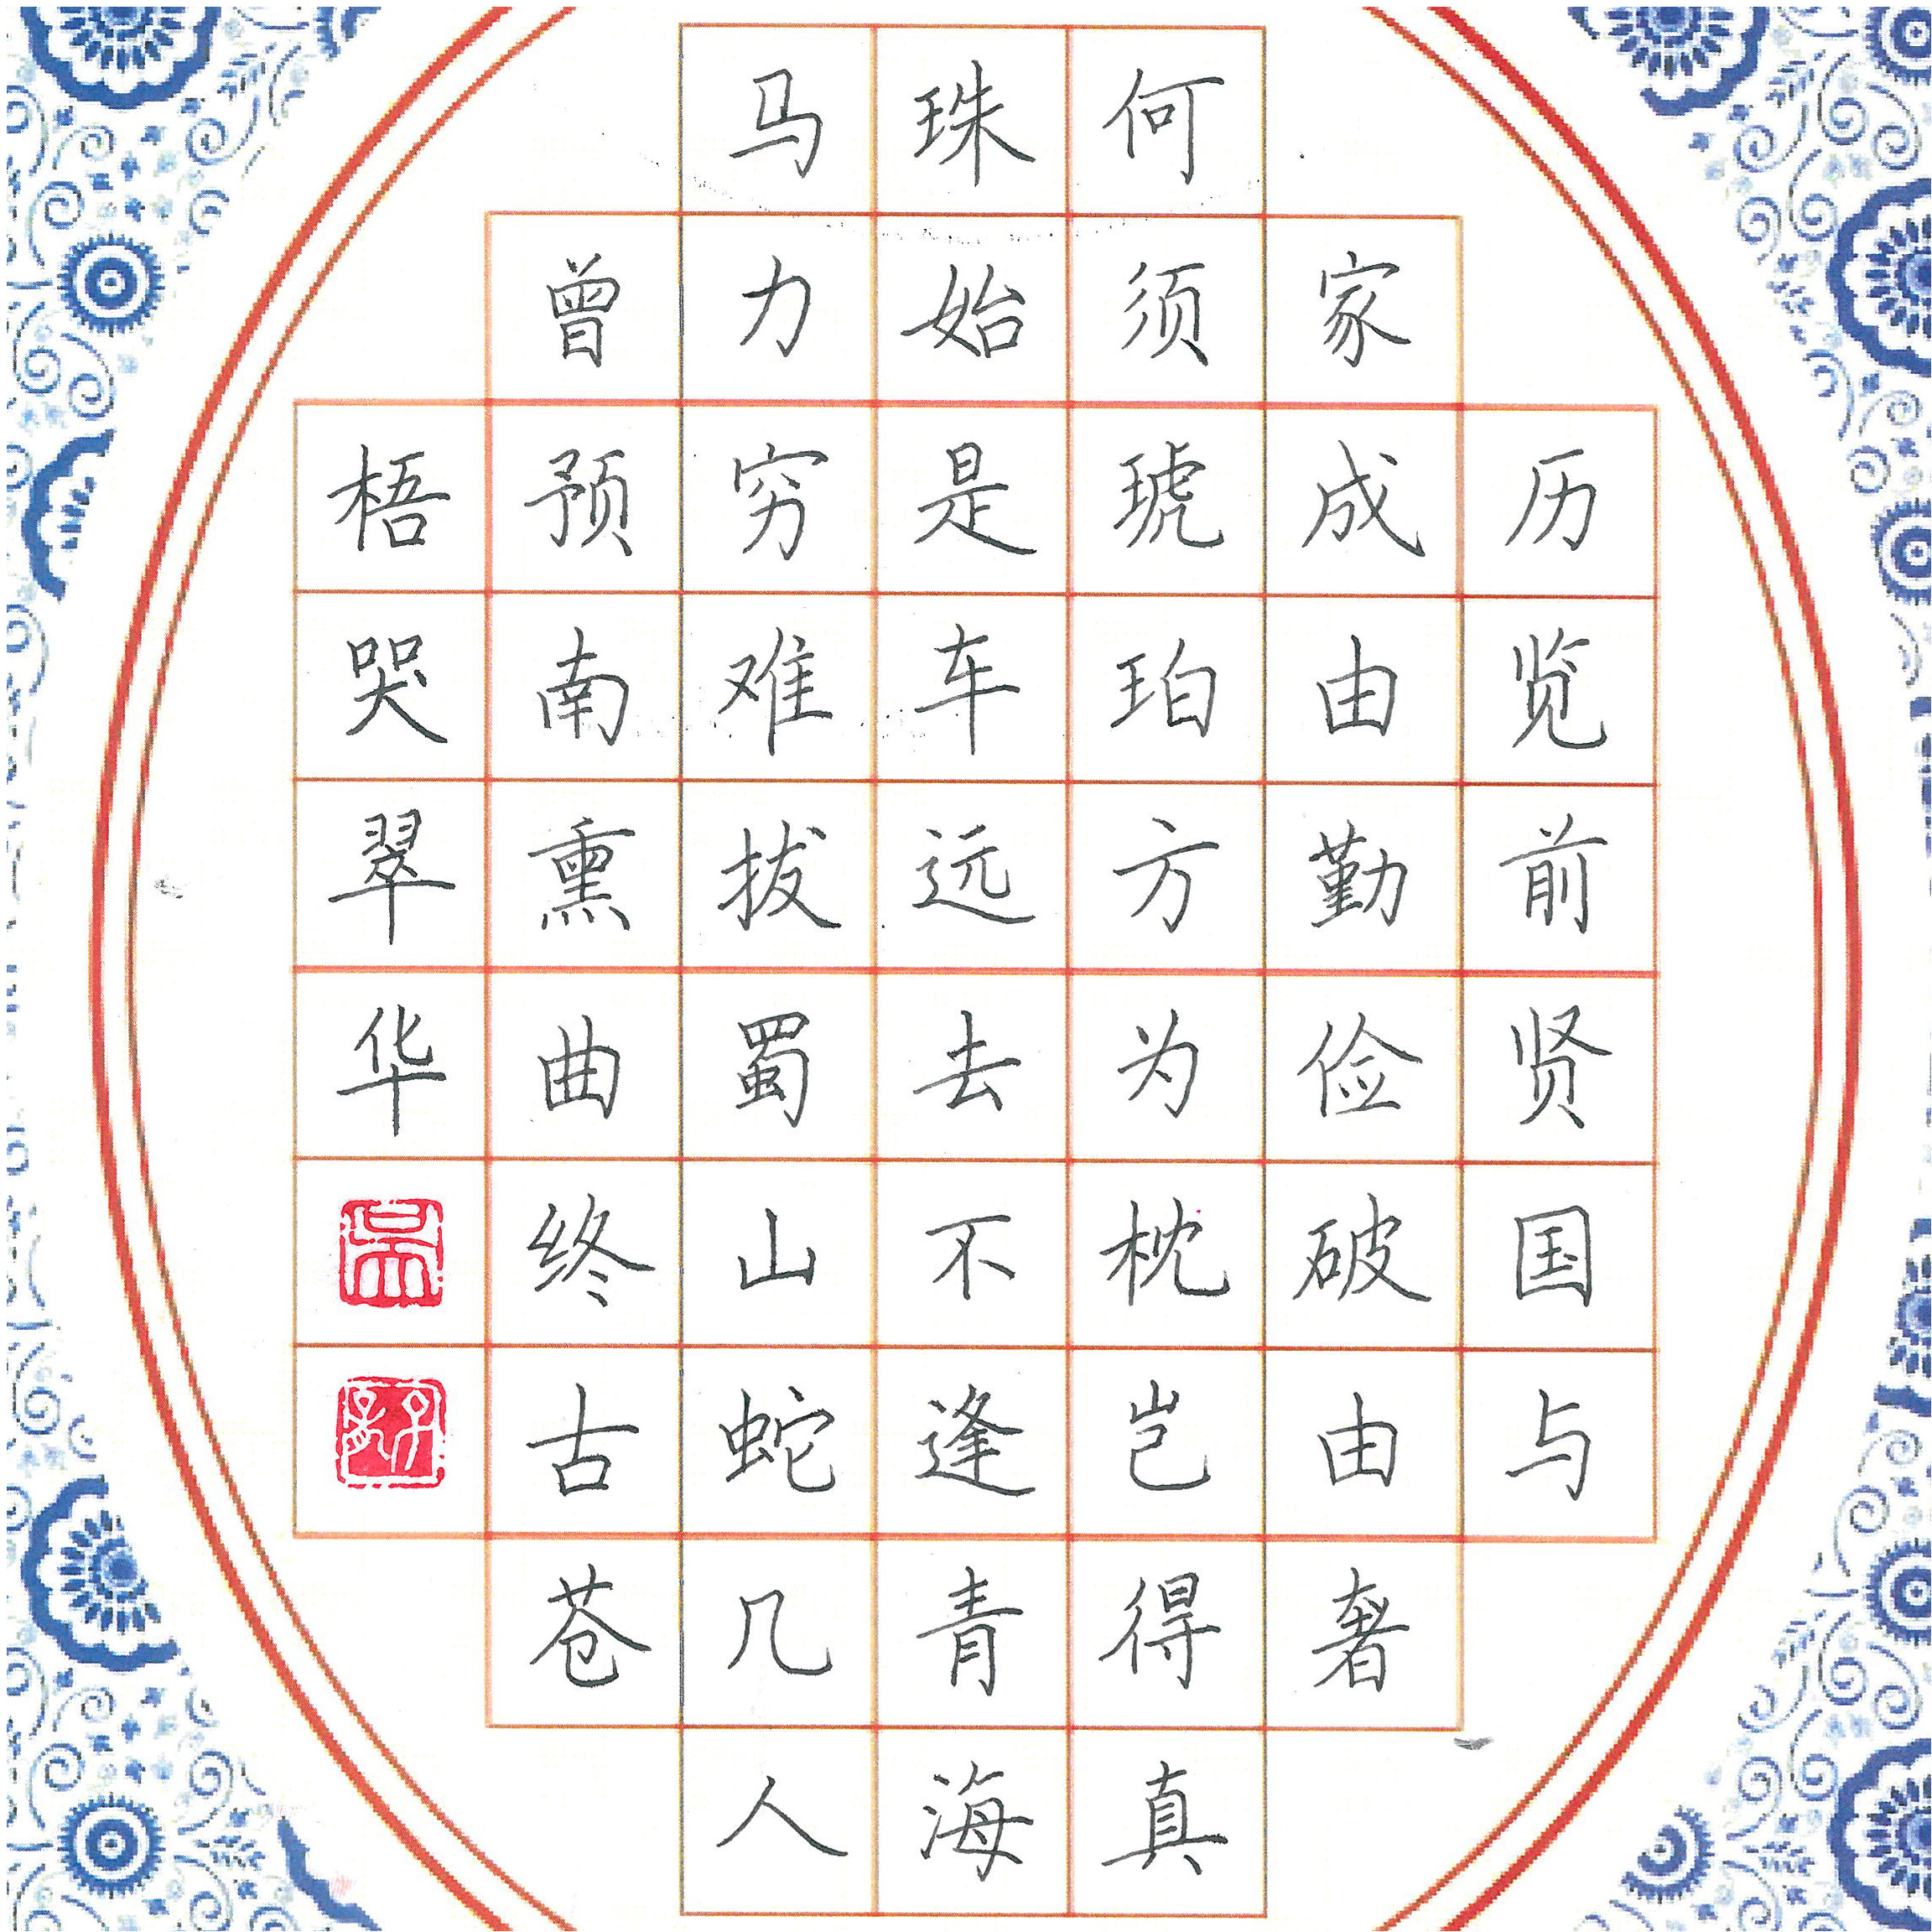 历览前贤国与
家成由勤俭破由奢
何须琥珀方为枕岂得真
珠始是车远去不逢青海
马力穷难拔蜀山蛇几人
曾预南熏曲终古苍
梧哭翠华
吴